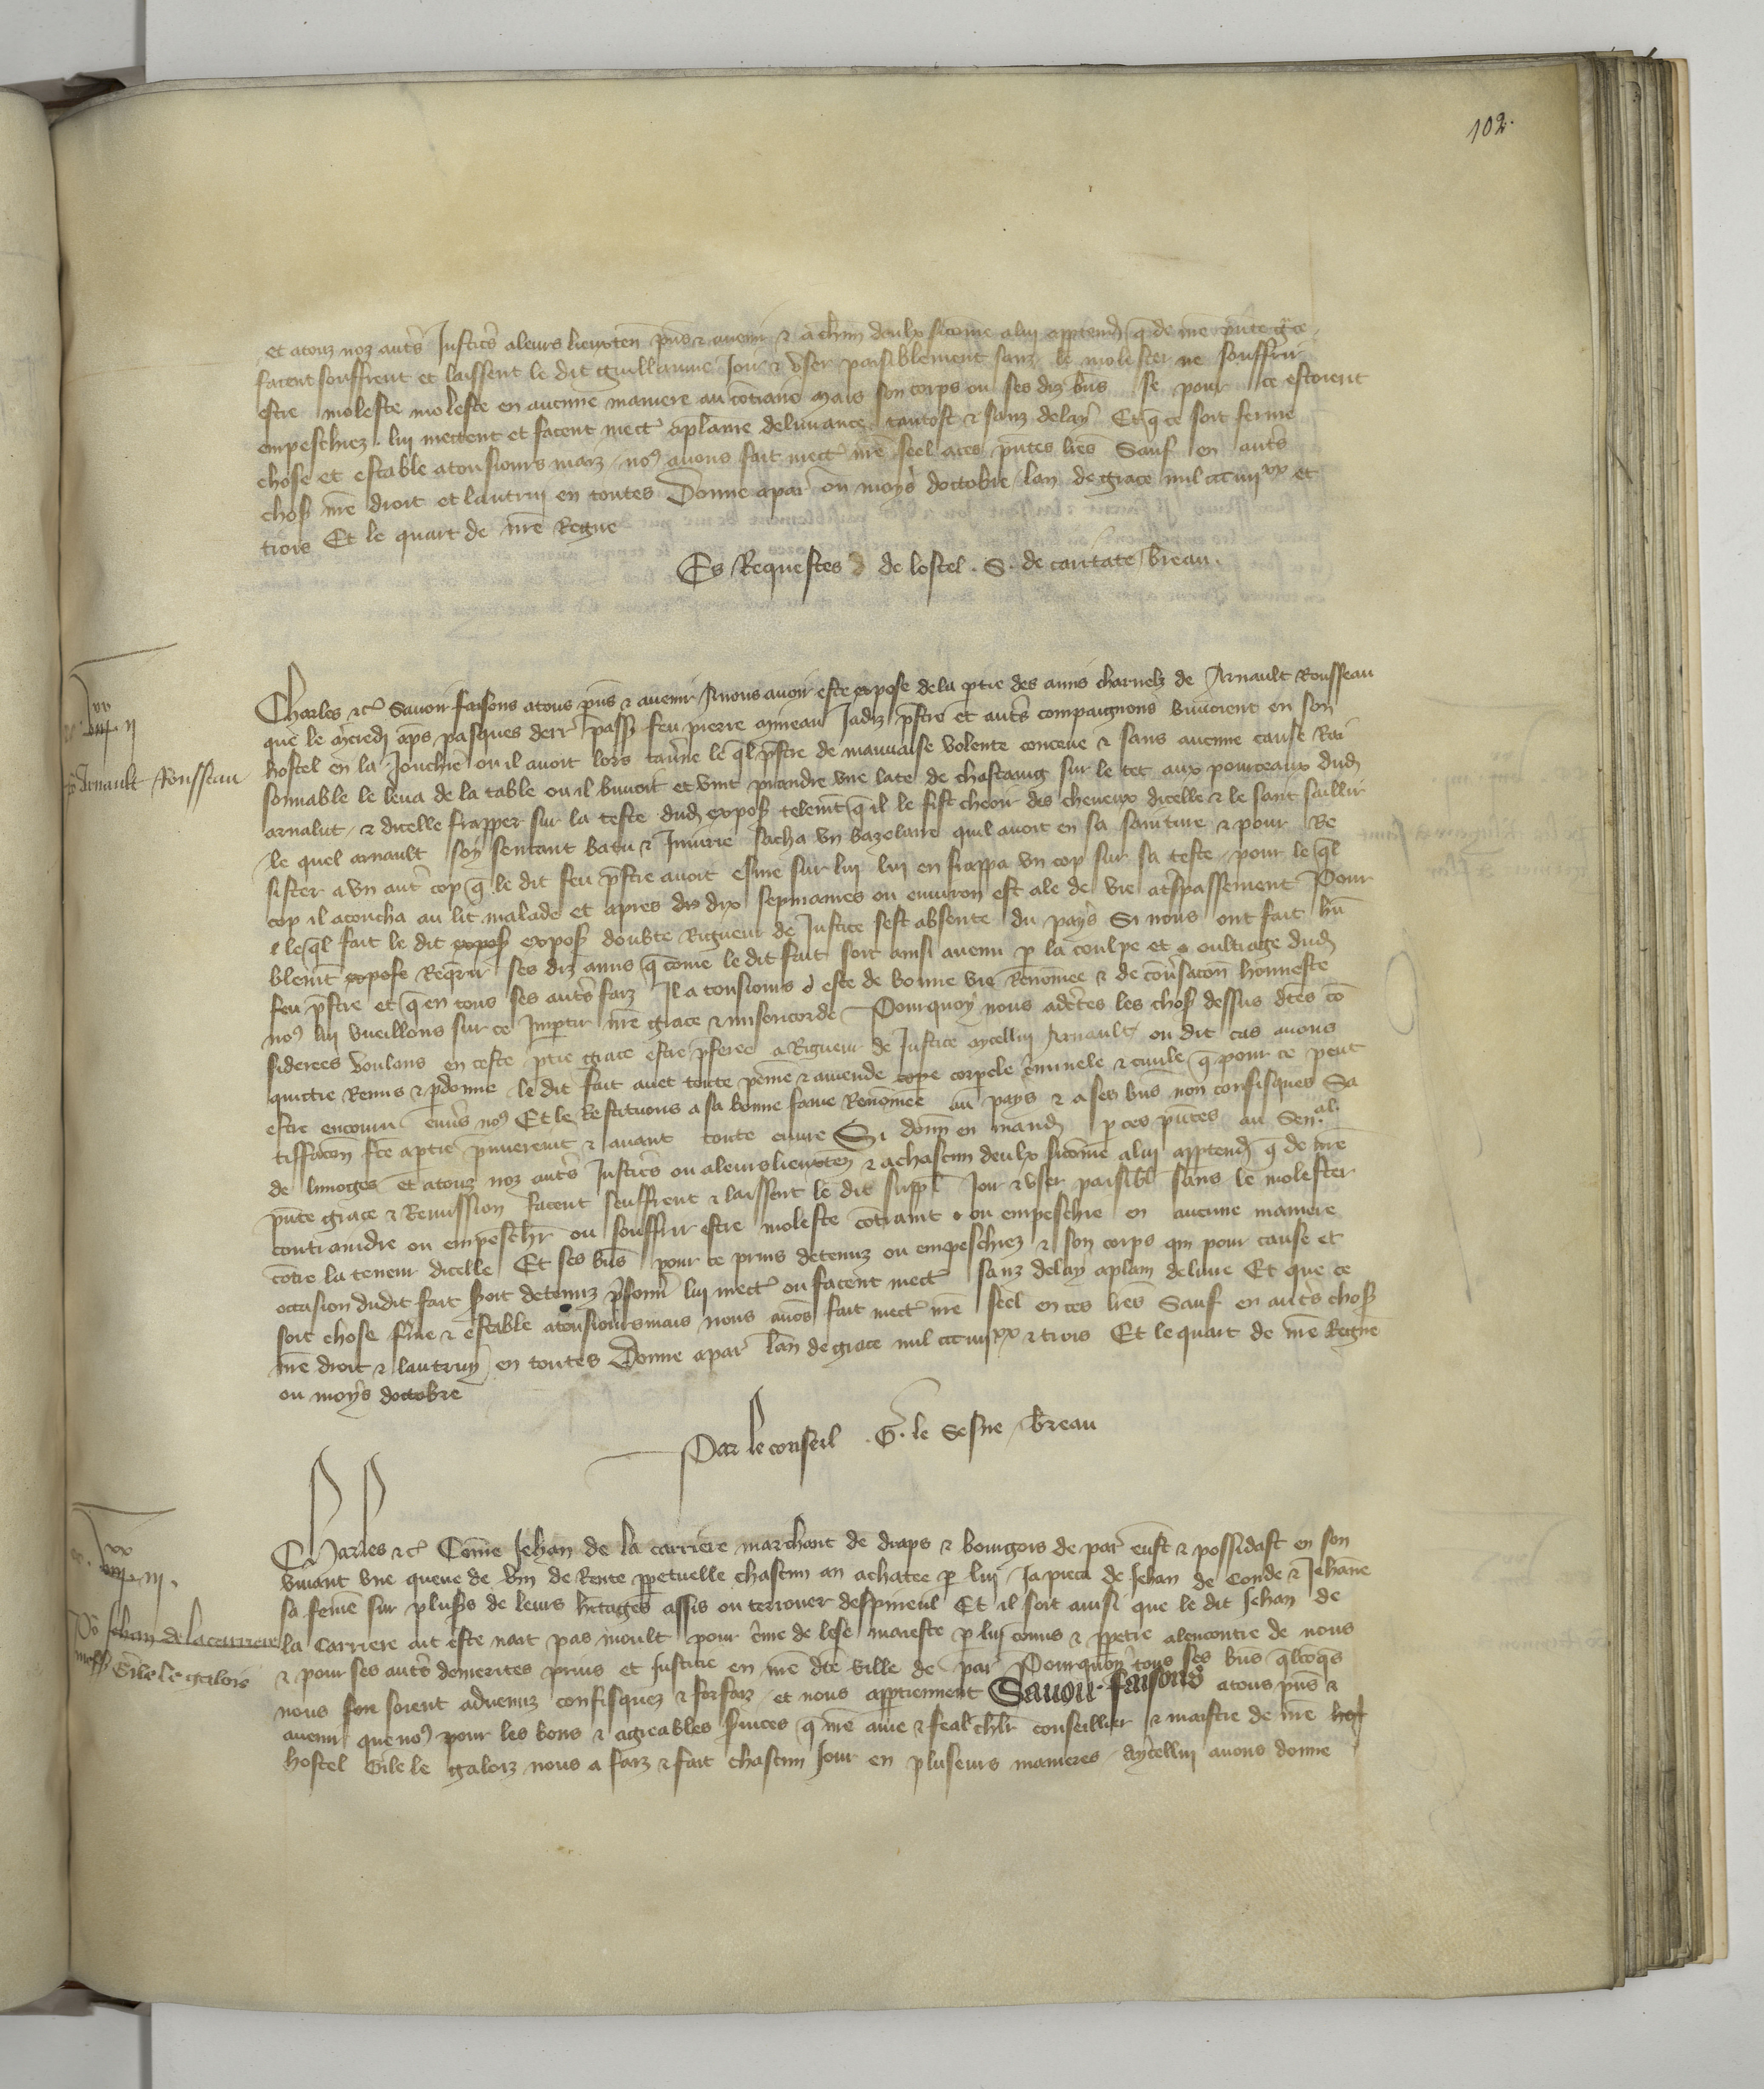 102.
et atouz noz autrs Justicrs aleurs lieuxten pns & avenir & a chun deulx sicome alui apptendra q de nre pnte gce
facent souffrent et laissent le dit guillaume Joir & user paisiblement sanz le molester ne souffrir
estre moleste moleste en aucune maniere au contraire Mais son corps ou ses diz bns se pour ce estoient
empeschiez lui mettent et facent mectre aplaine delivrance tantost & sanz delay Et q ce soit ferme
chose et estable atousiours maiz nous avons fait mectre nre seel aces pntes lres Sauf en autrs
chos nre droit et lautruy en toutes Donne a par ou moys doctobre lan de grace mil ccc iiiixx et
trois Et le quart de nre Regne
Es Requestes de lostel . S. de caritate breau.
Charles &c Savoir faisons atous pns & avenir A nous avoir este expose de la ptie des amis charnelz de Arnault Rousseau
que le mcredi aps pasques derr pass feu pierre aymeau Jadiz pstre et autrs compaignons buvoient en son
hostel en la Jonchie ou il avoit lors tavrne le ql pstre de mauvaise volente conceue & sans aucune cause Rai
sonnable se leva de la table ou il buvoit et vint prandre une late de chastaing sur le tet aux pourceaux dud
arnalut & dicelle frapper sur la teste dud expos telemt q il le fist cheoir des cheveux dicelle & le sanc saillir
le quel arnault soy sentant batu & Iniurie sacha un bazelaire quil avoit en sa sainture & pour Re
sister a un autr cop q le dit feu pstre avoit esme sur lui lui en frappa un cop sur sa teste pour le ql
cop il acoucha au lit malade et apres dix sepmaines ou environ est ale de vie atrspassement Pour
le ql fait le dit expos expos doubte Rigueur de Justice sest absente du pays Si nous ont fait hu
blemt expose Requrir ses diz amis q come le dit fait soit ainsi avenu p la coulpe et oultrage dud
feu pstre et q en tous ses autrs faiz Il a tousiours este de bonne vie Renomee & de conversacon honneste
nous lui vueillons sur ce Impartir nre grace & misericorde Pourquoy nous adcrtes les chos dessus dtes con
siderees voulans en ceste ptie grace estre pferee a Rigueur de Justice aycellui Arnault ou dit cas avons
quictie Remis & pdonne le dit fait avec toute peine & amende corpele criminele & civile q pour ce peut
estre encouru envrs nous Et le Restituons a sa bonne fame Renomee au pays & a ses bns non confisques Sa
tiffacon fce a ptie pmierement & avant toute euvre Si donn en mand p ces pntes au Senal.
de limoges et atouz noz autrs Justicrs ou aleurs lieuxten & a chascun deulx sicome alui apptend q de nre
pnte grace & Remission facent seuffrent & laissent le dit suppl Joir & user paisibl sans le molester
contraindre ou empeschr ou souffrir estre moleste contraint ou empeschie en aucune maniere
contre la teneur dicelle Et ses bns pour ce prins detenuz ou empeschiez & son corps qui pour cause et
occasion dudit fait soit detenuz prisonn lui mectr ou facent mectr sanz delay aplain delivre Et que ce
soit chose frme & estable atousioursmais nous avons fait mectr nre seel en ces lres Sauf en autrs chos
nre droit & lautruy en toutes Donne a par lan de grace mil ccc iiiixx & trois Et le quart de nre Regne
ou moys doctobre
Par le conseil . G. le Sesne breau
Charles &c Come Jehan de la carriere marchant de draps & bourgois de par eust & possidast en son
vivant une queue de vin de Rente ppetuelle chascun an achatee p lui Ja pieca de Jehan de Conde & Jehanne
sa feme sur pluss de leurs hitages assis ou terrouer despineul Et il soit ainsi que le dit Jehan de
la Carriere ait este nait pas moult pour crime de lese maieste p lui comis & ppetre alencontre de nous
& pour ses autrs demerites prins et Justicie en nre dte ville de par Pourquoy tous ses bns qlcoqs
nous soient advenuz confisquez & forfaiz et nous apptiennent Savoir faisons atous pns &
avenir que nous pour les bons & agreables svices q nre ame & feal chlr conseillier & maistre de nre hos
hostel Gile le galoiz nous a faiz & fait chascun Jour en pluseurs manieres Aycellui avons donne
iiiixx ii
Arnault Rousseau
iiiixx iii.
Po Jehan de la carriere
mess Gile le galois